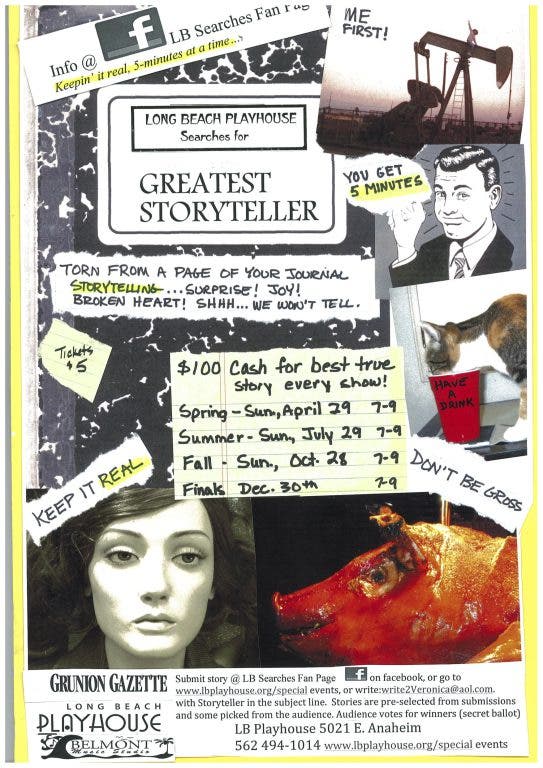 Info @ f LB Searches Fan Pag
Keepin' it real, 5-minutes at a time...
ME
FIRST!
LONG BEACH PLAYHOUSE
Searches for
GREATEST
STORYTELLER
YOU GET
5 MINUTES
TORN FROM A PAGE OF YOUR JOURNAL
STORYTELLING...SURPRISE! JOY!
BROKEN HEART! SHHH... WE WON'T TELL.
Tickets
$5
HAVE
A
DRINK
$100 Cash for best true
story every show!
Spring - Sun, April 29 7-9
Summer - Sun, July 29 7-9
Fall - Sun, Oct. 28 7-9
Finals Dec. 30th 7-9
KEEP IT REAL
DON'T BE GROSS
GRUNION GAZETTE
LONG BEACH
PLAYHOUSE
BELMONT
Music Studio
Submit story @ LB Searches Fan Page f on facebook, or go to
www.lbplayhouse.org/special events, or write:write2Veronica@aol.com.
with Storyteller in the subject line. Stories are pre-selected from submissions
and some picked from the audience. Audience votes for winners (secret ballot)
LB Playhouse 5021 E. Anaheim
562 494-1014 www.lbplayhouse.org/special events